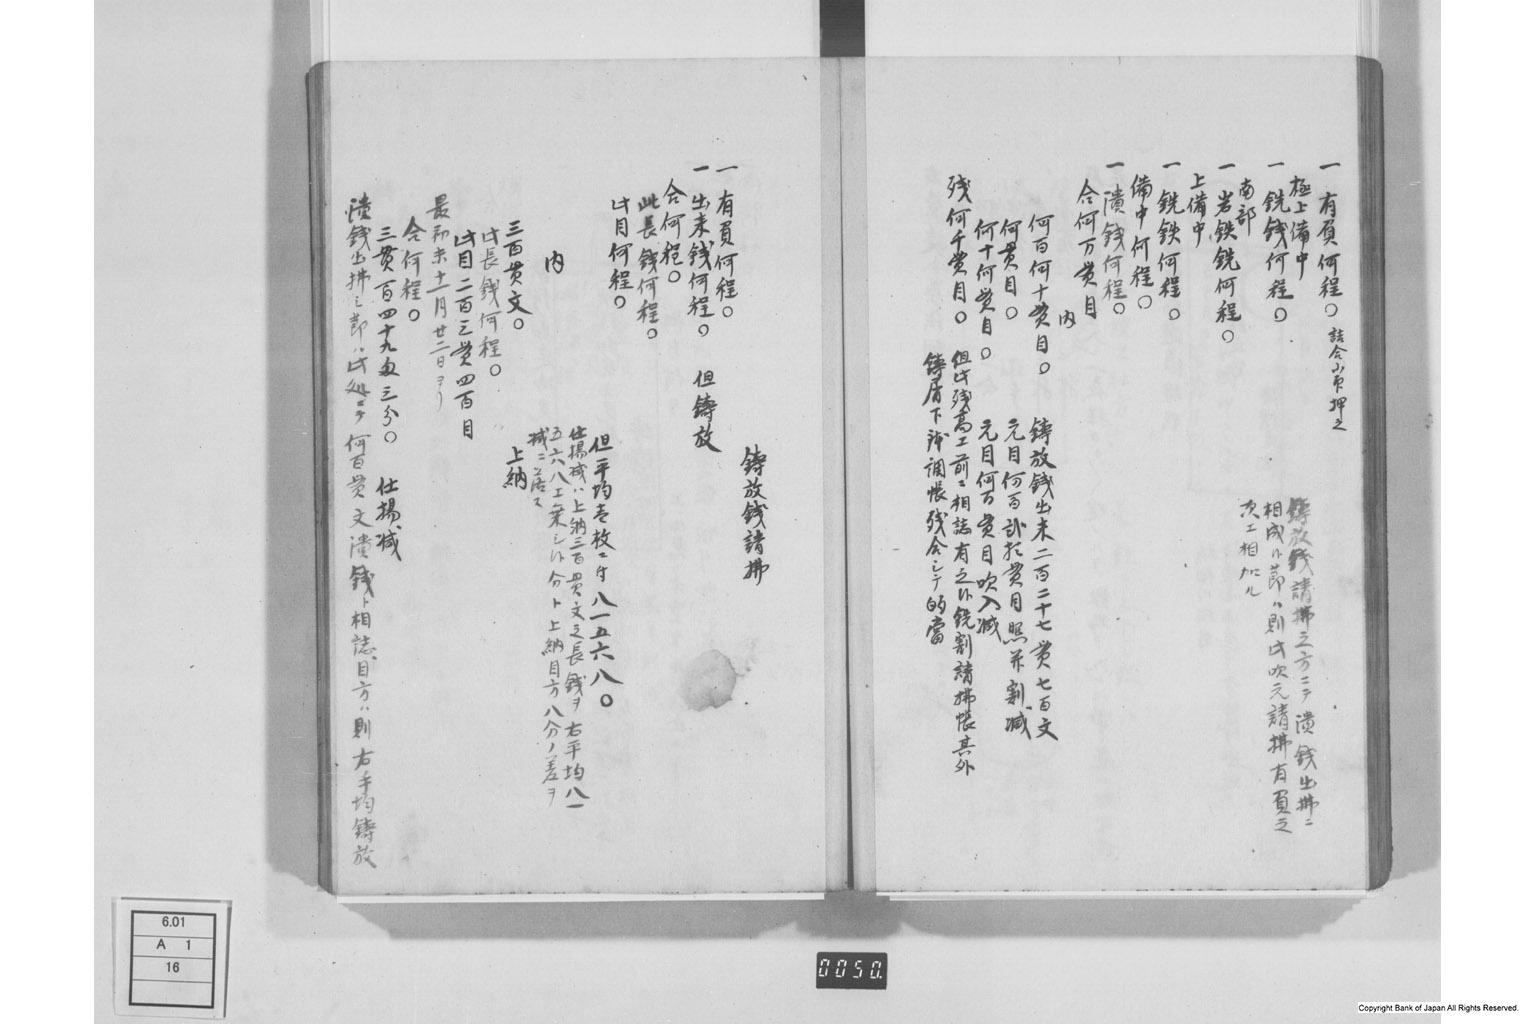 一 有買何程〇 詰合小買押之
極上備中
一 銑銭何程〇
南部
一 岩鉄銑何程〇
上備中
一 銑鉄何程〇
備中何程〇
一 潰銭何程〇
合何万貫目
内
何百何十貫目〇 鋳放銭出来二百二十七貫七百文
何貫目〇 元目何百貫目 割減
何十何貫目〇 元目何百貫目吹入減
残何千貫目〇 但此残高工前ニ相誌有之候銑割請拂帳其外
鋳屑下 調帳残合シテ的當
鋳放銭請拂之方ニテ潰銭出拂ニ
相成候節ハ則此吹元請拂有買之
次エ相加ル
鋳放銭請拂
一 有買何程〇
一 出来銭何程〇 但鋳放
合何程〇
此長銭何程〇
此目何程〇
但平均壱枚ニ付八一五六八〇
仕揚減ハ上納三百貫文之長銭ヲ右平均八一
五六八エ乗シ候分ト上納目方八分ノ差ヲ
減ニ落ス
内
三百貫文〇 上納
此長銭何程〇
此目二百三貫四百目
最初未十一月廿二日ヨリ
合何程〇
三貫百四十九匁三分〇 仕揚減
潰銭出拂之節ハ此処ニテ何百貫文潰銭ト相誌、目方ハ則右平均鋳放
6.01
A 1
16
0050.
Copyright Bank of Japan All Rights Reserved.